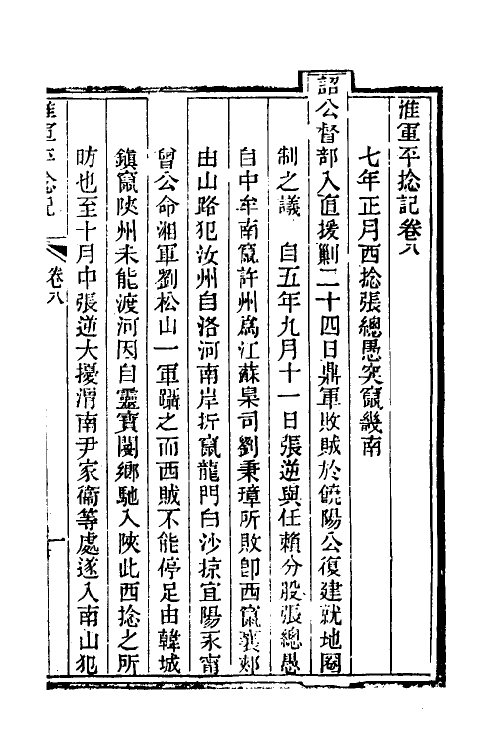 淮軍平捻記卷八
七年正月西捻張總愚突竄畿南
詔公督部入直援剿二十四日鼎軍敗賊於饒陽公復建就地圈
制之議　自五年九月十一日張逆與任賴分股張總愚
自中牟南竄許州爲江蘇臬司劉秉璋所敗卽西竄襄郟
由山路犯汝州自洛河南岸折竄龍門白沙掠宜陽永甯
曾公命湘軍劉松山一軍躡之而西賊不能停足由韓城
鎮竄陝州未能渡河因自靈寶閿鄉馳入陝此西捻之所
昉也至十月中張逆大擾渭南尹家衞等處遂入南山犯
淮軍平捻記
卷八
一